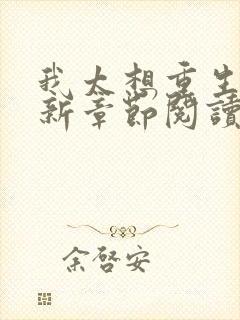 我太想重生
新章節閱讀
余啓安